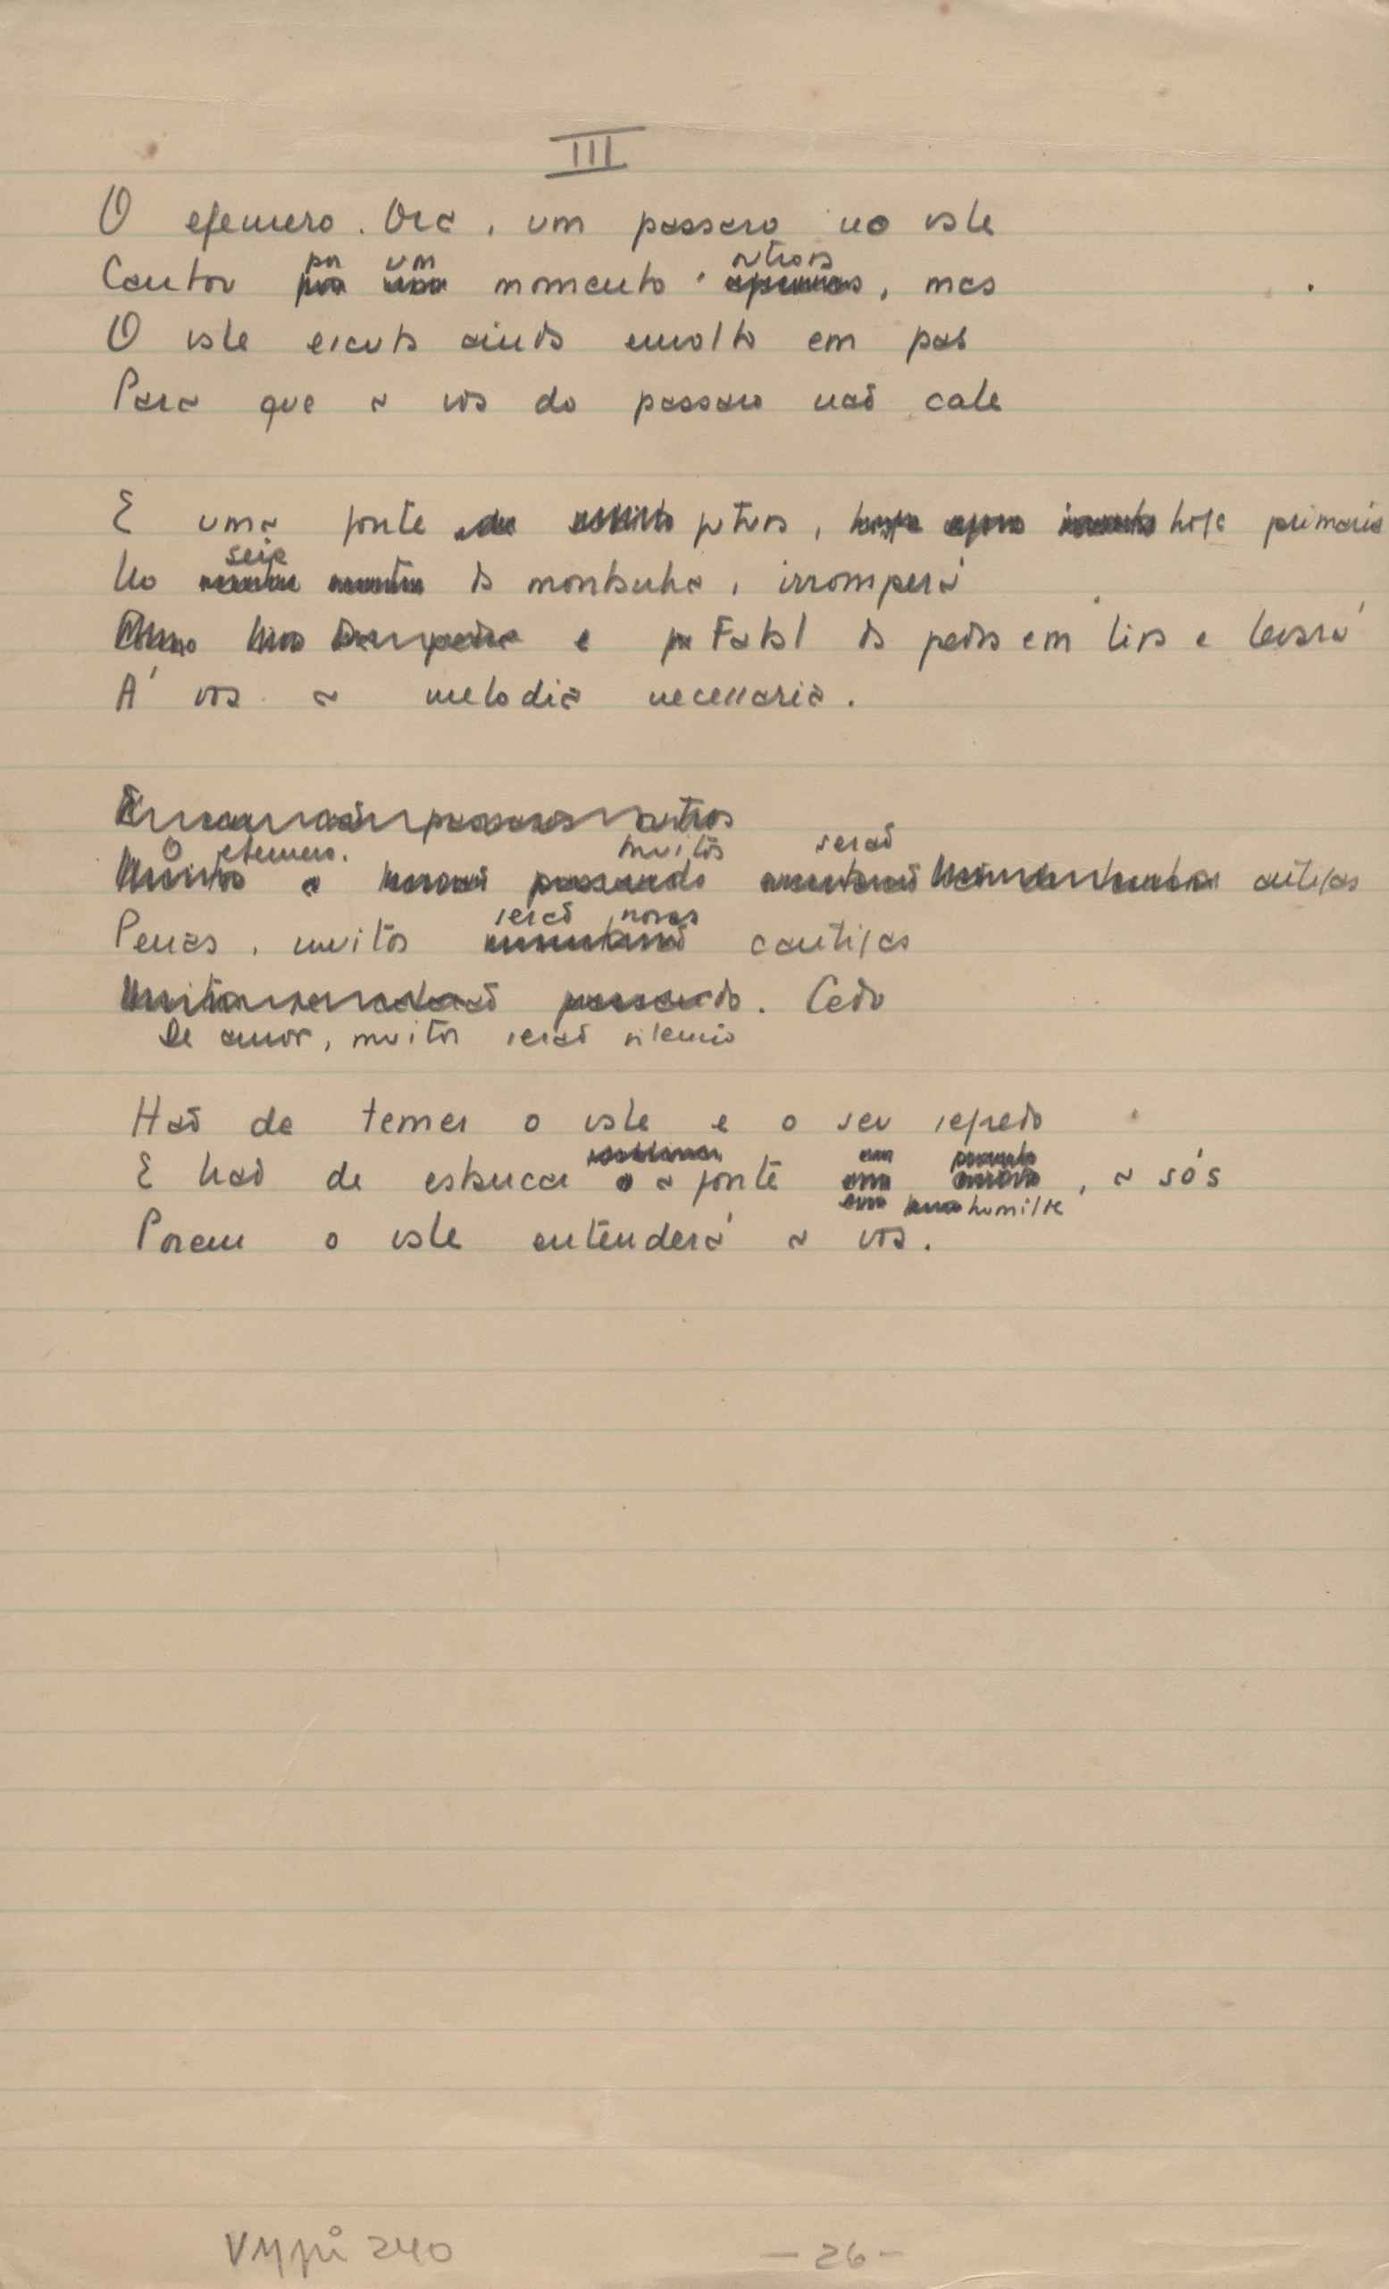 III
O efemero. Ora, um passaro no vale
Cantou por um momento outrora, mas
O vale escuta ainda envolto em paz
Para que a voz do passaro não cale
E uma fonte futura, hoje primaria
No seio da montanha, irromperá
e Fatal da pedra em lira e levará
Á voz a melodia necessaria.
O efemero. muitos serão
a antigas
Penas, muitos serão novas cantigas
Cedo
De amor, muitos serão silencio
Hão de temer o vale e o seu segredo
E hão de estancar a fonte humilde, a sós
Porem o vale entenderá a voz.
VMpi 240
- 26 -